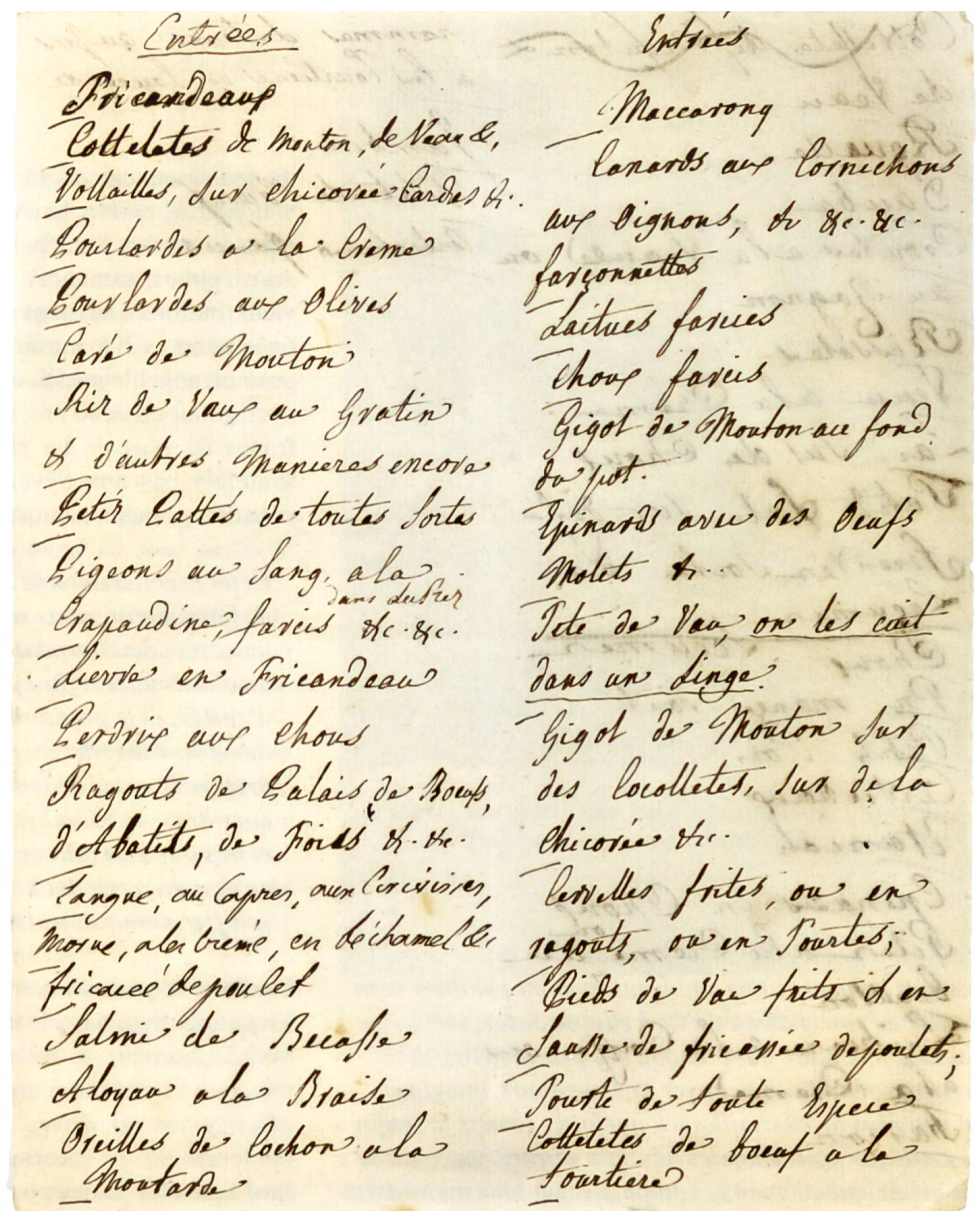 Entrées
Fricandeaux
Cottelettes de Mouton, de Veau &c,
Vollailles, sur chicorée Cardes &c.
Poulardes a la Creme
Poulardes aux Olives
Caré de Mouton
Riz de Vaux au Gratin
& d'autres Manieres encore
Petits Pattés de toutes Sortes
Pigeons au Sang, a la
dans du Riz
Crapaudine, farcis &c. &c.
Lievre en Fricandeau
Perdrix aux Chous
Ragouts de Palais de Boeufs,
d'Abatits, de Foies &. &c.
Langue, au Capres, aux Ecrivisses,
Morue, a la Creme, en Béchamel &c
fricacée de poulet
Salmi de Becasse
Aloyau a la Braise
Oreilles de Cochon a la
Moutarde
Entrées
Maccarony
Canards aux Cornichons
aux Oignons, & &c. &c.
farçonnettes
Laitues farcies
Choux farcis
Gigot de Mouton au fond
du pot.
Epinards avec des Oeufs
Molets &c.
Tete de Vau, on les cuit
dans un Linge.
Gigot de Mouton sur
des, sur de la
Chicorée &c.
Cervelles frites, ou en
ragouts, ou en Tourtes;
Pieds de Vau frits & en
Sausse de fricassée de poulets;
Tourte de toute Espece
Cottelettes de boeuf a la
Tourtiere